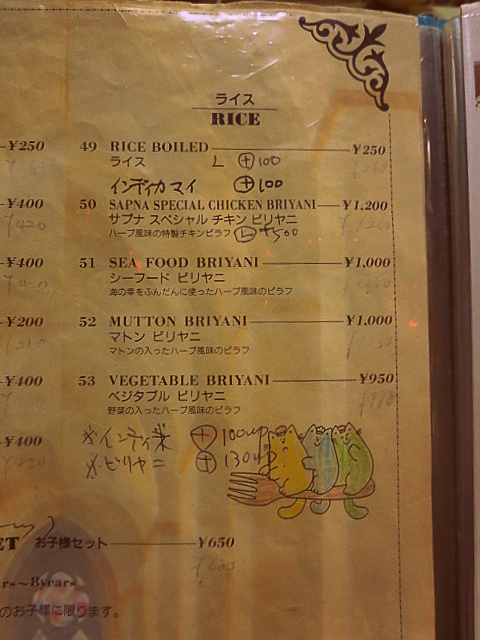 ライス
RICE
¥250
49 RICE BOILED ¥250
ライス L ⊕100
インディカマイ ⊕100
¥400
¥420
50 SAPNA SPECIAL CHICKEN BRIYANI ¥1,200
サプナ スペシャル チキン ビリヤニ
ハーブ風味の特製チキンピラフ Ⓛ +500
¥400
51 SEA FOOD BRIYANI ¥1,000
シーフード ビリヤニ
海の幸をふんだんに使ったハーブ風味のピラフ
¥200
52 MUTTON BRIYANI ¥1,000
マトン ビリヤニ
マトンの入ったハーブ風味のピラフ
¥400
53 VEGETABLE BRIYANI ¥950
ベジタブル ビリヤニ
野菜の入ったハーブ風味のピラフ
¥400
¥420
※インディ米 ⊕100up
※ビリヤニ ⊕130up
ET お子様セット ¥650
rs~8years
のお子様に限ります。